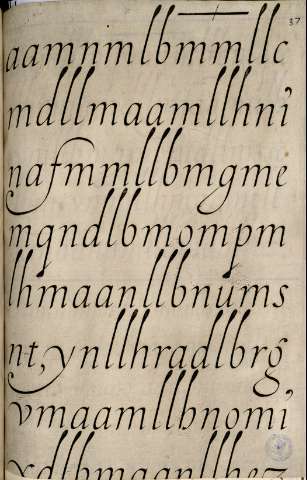 37
aamnmlbmmllc
mdllmaamllhni
nafmmllbmgme
mqndlbmompm
lhmaanllbnums
nt,ynllhradlbrg
vmaamllbnomi